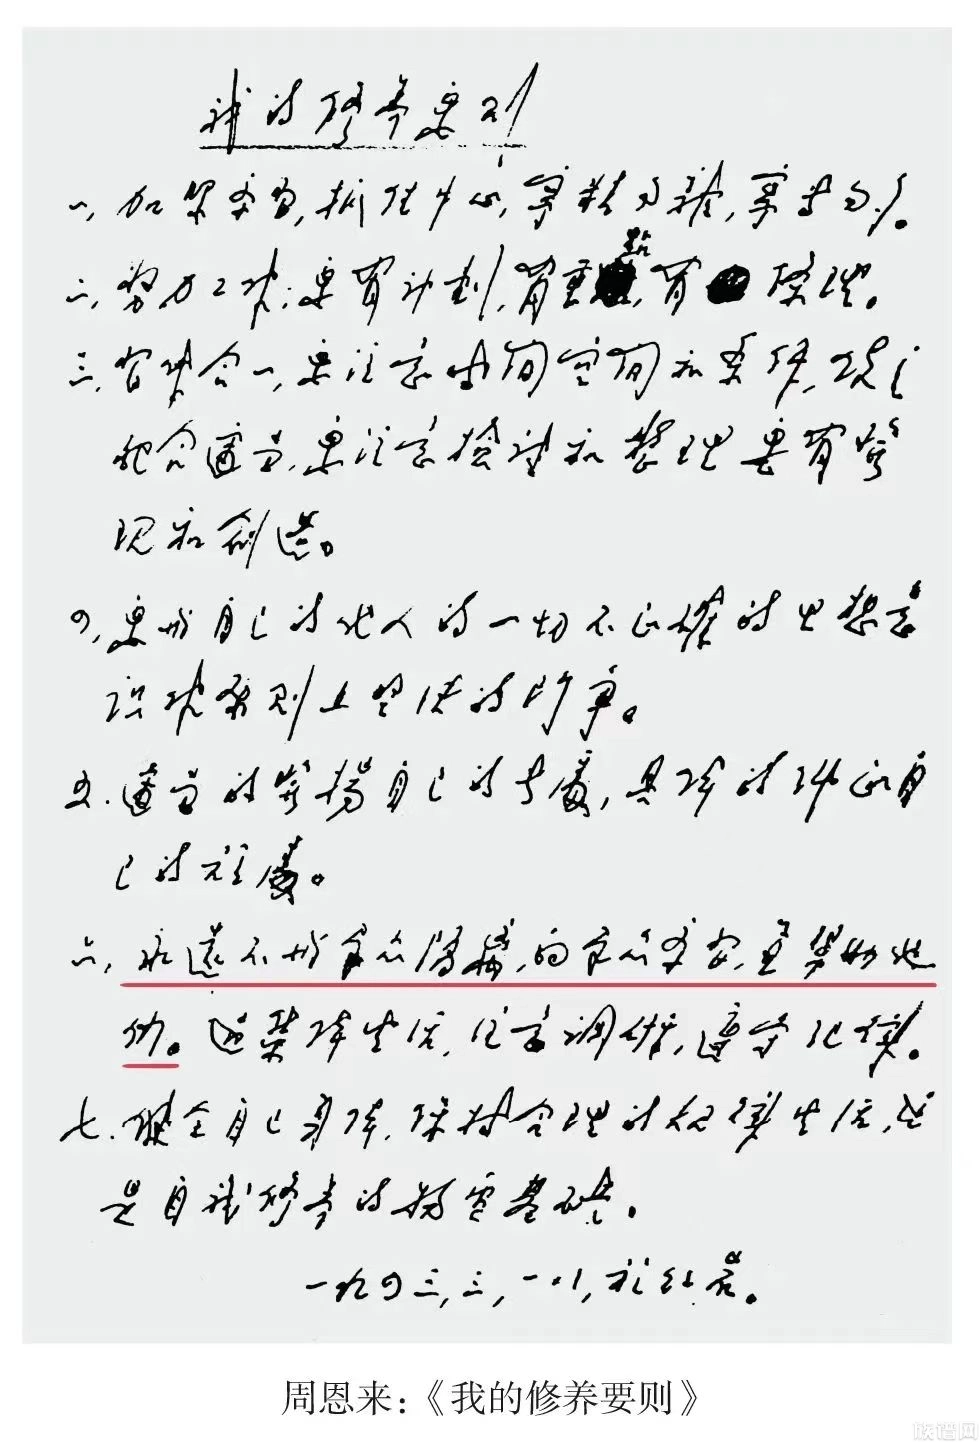 我的修养要则
一、加紧学习,抓住中心,宁精勿杂,宁专勿多。
二、努力工作,要有计划,有重点,有条理。
三、习作合一,要注意时间空间和条件,使之
配合适当,要注意检讨和整理,要有发
现和创造。
四、要与自己的他人的一切不正确的思想意
识作原则上坚决的斗争。
五、适当的发扬自己的长处,具体的纠正自
己的短处。
六、永远不与群众隔离,向群众学习,并帮助他
们。过集体生活,注意调研,遵守纪律。
七、健全自己身体,保持合理的规律生活,这
是自我修养的物质基础。
一九四三,三,一八,于红岩。
周恩来:《我的修养要则》
族谱网